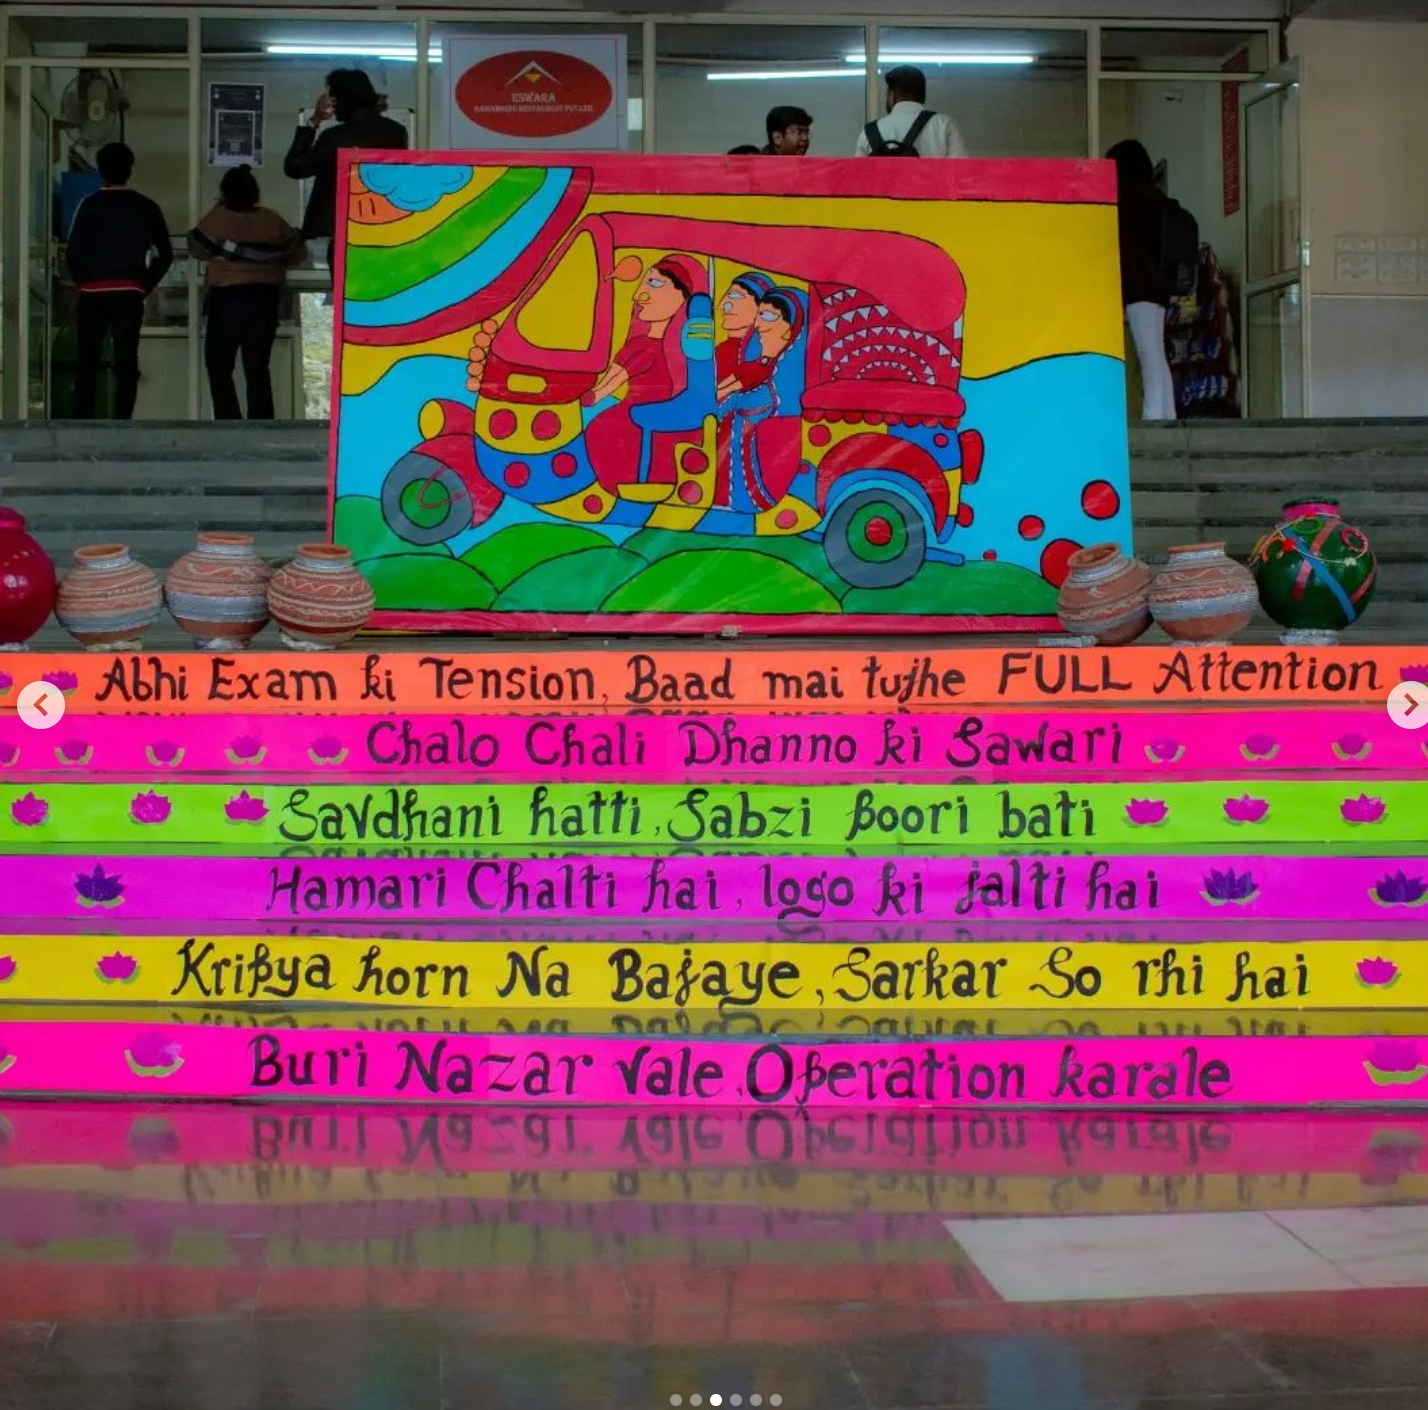 ESWARA
Abhi Exam ki Tension, Baad mai tujhe FULL Attention
Chalo Chali Dhanno ki Sawari
Savdhani hatti, Sabzi poori bati
Hamari Chalti hai, logo ki jalti hai
Kripya horn Na Bajaye, Sarkar So rhi hai
Buri Nazar Vale, Operation karale